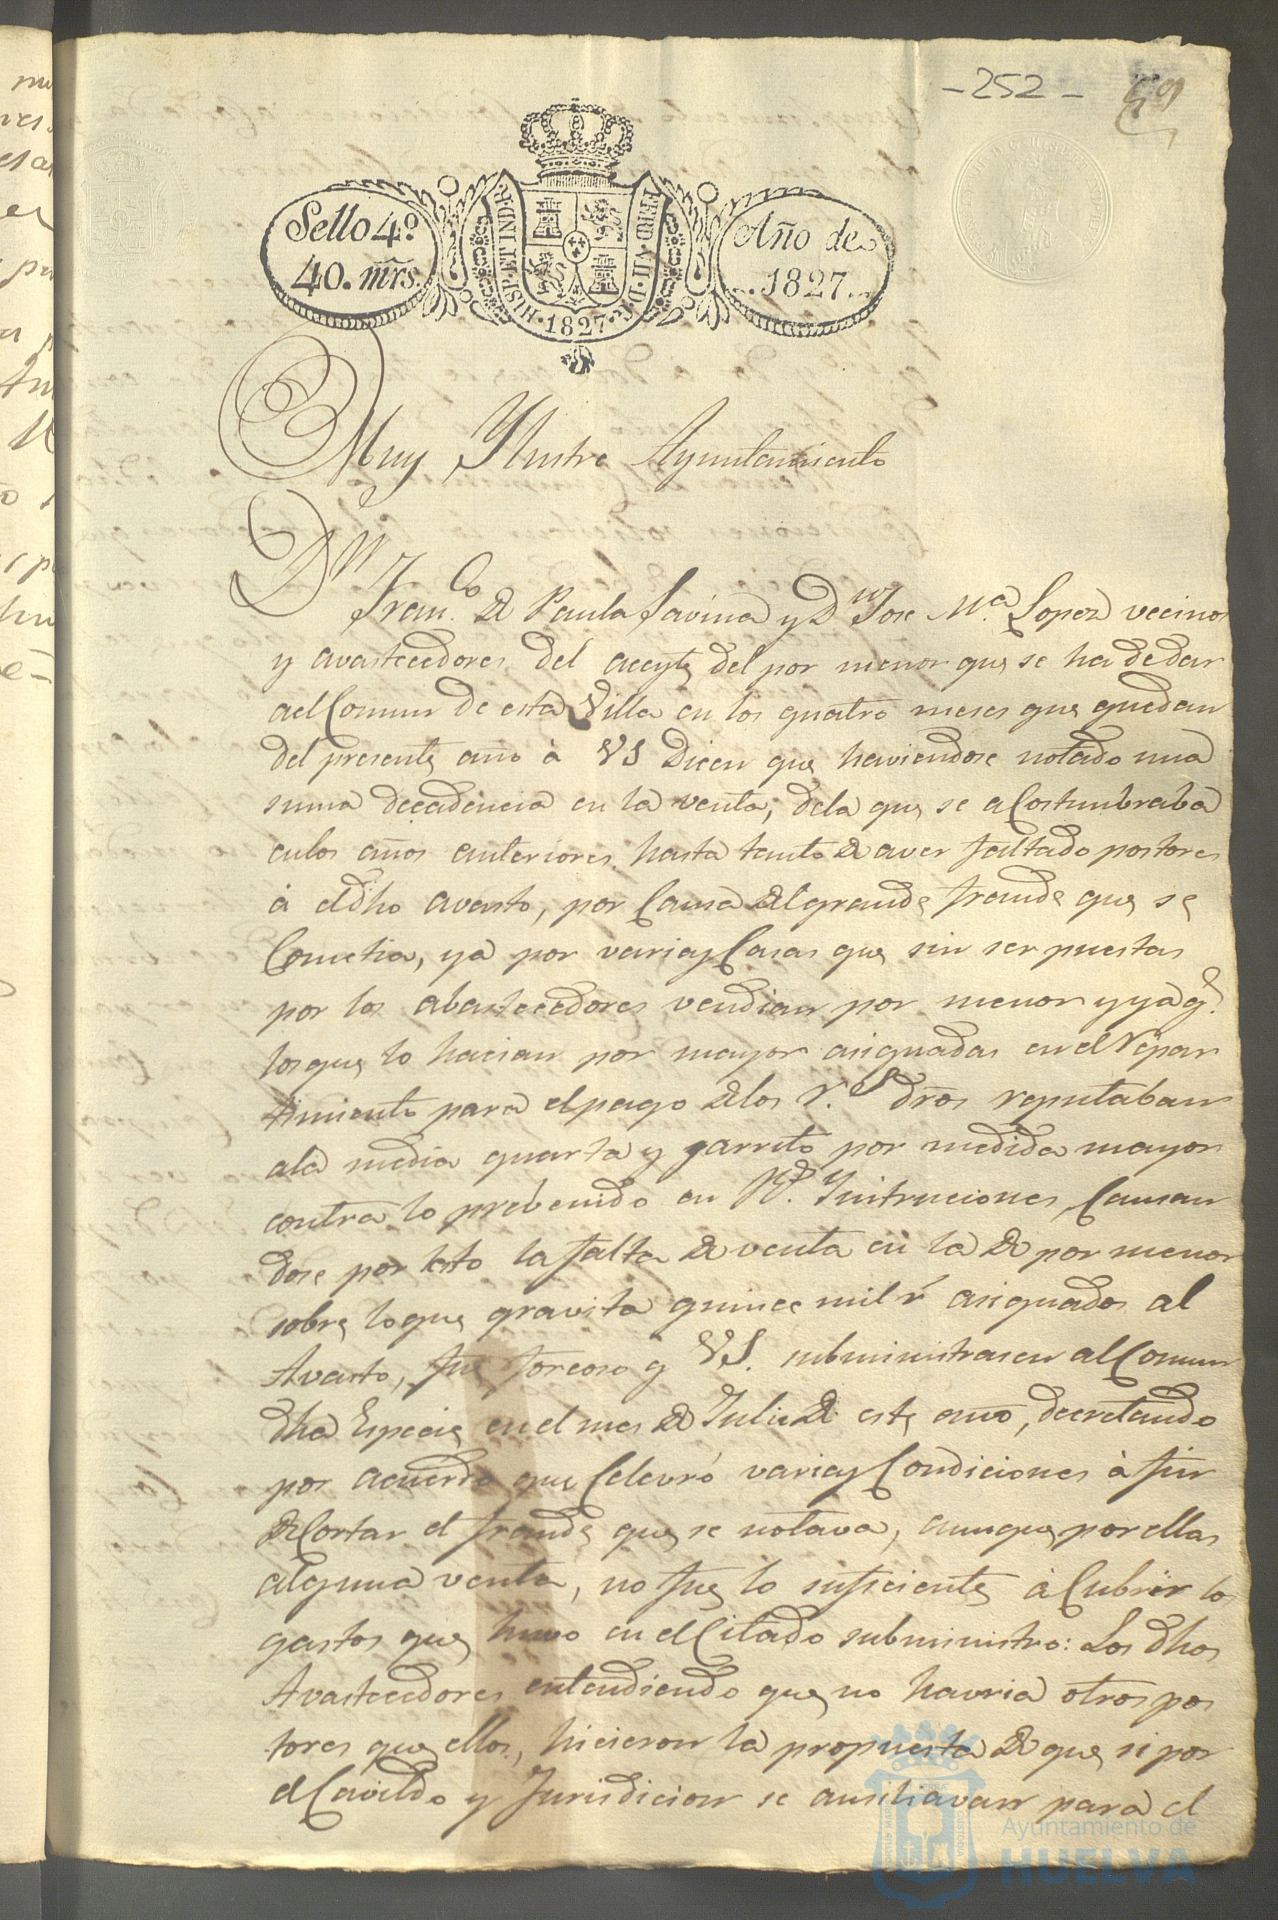 -252-
59
Sello 4º
40. mrs.
HISP. ET IND. R.
FERD. VII. D. G.
1827
Año de
1827
Muy Ylustre Ayuntamiento
Dn
Franco. de Paula Savina y Dn Jose Ma. Lopez vecinos
y avastecedores del aceyte del por menor que se ha de dar
ael Comun de esta Villa en los quatro meses que quedan
del presente año à VS Dicen que haviendose notado una
suma decadencia en la venta, dela que se acostumbraba
enlos años anteriores, hasta tanto de aver faltado postores
à eldho avasto, por Causa del grande fraude que se
Cometia, ya por varias Casas que sin ser puestas
por los abastecedores vendian por menor y ya q.e
los que lo hacian por mayor asignadas en el repar
timiento para el pago de los r.s dros reputaban
ala media quarta y jarrito por medida mayor
contra lo prebenido en Rs. Ynstruciones, Causan
dose por esto la falta de venta en la de por menor
sobre lo que gravita quince mil r.s asignados al
Avasto, fue forcoso q VS. subministrasen al Comun
dha Especie en el mes de Julio de este año, decretando
por acuerdo que Celevró varias Condiciones à fin
de Cortar el fraude que se notava, aunque por ellas
alguna venta, no fue lo suficiente à Cubrir los
gastos que huvo en el Citado subministro: Los dhos
Avastecedores entendiendo que no havria otros pos
tores que ellos, hicieron la propuesta de que si por
el Cavildo y Jurisdicion se ausiliavan para el
Ayuntamiento de
HUELVA